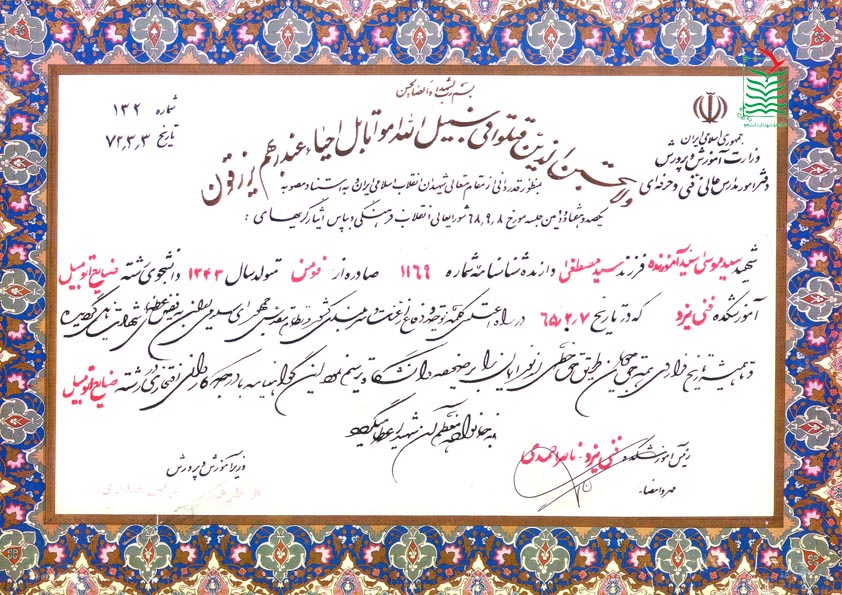 بسم رب الشهداء و الصدیقین
شماره ۱۳۲
تاریخ ۷۲٫۳٫۳
جمهوری اسلامی ایران
وزارت آموزش و پرورش
دفتر امور مدارس عالی فنی و حرفه ای
ولا تحسبن الذین قتلوا فی سبیل الله امواتا بل احیاء عند ربهم یرزقون
بمنظور قدردانی از مقام متعالی شهیدان انقلاب اسلامی ایران و به استناد مصوبه
یکصد و هشتاد و دومین جلسه مورخ ۶۸٫۹٫۸ شورایعالی انقلاب فرهنگی و بپاس ایثارگریهای :
شهید سید موسی اسپید آموزنده فرزند سید مصطفی دارنده شناسنامه شماره ۱۱۶۹ صادره از فومن متولد سال ۱۳۴۳ دانشجوی رشته صنایع اتومبیل
آموزشکده فنی یزد که در تاریخ ۶۵٫۲٫۷ در راه اعتلای کلمه توحید و دفاع از عزت و سربلندی کشور و نظام مقدس جمهوری اسلامی ایران به فیض عظمای شهادت نایل گردیده
و همیشه تاریخ فرا راه همه حق جویان طریق حق خطی از نور ایمان را بر صحیفه دانشگاه ترسیم نمود این گواهینامه با درجه کاردانی افتخاری در رشته صنایع اتومبیل
به خانواده معظم آن شهید اعطا میگردد
رئیس آموزشکده فنی یزد - ناصر احمدی
مهر و امضاء
وزیر آموزش و پرورش